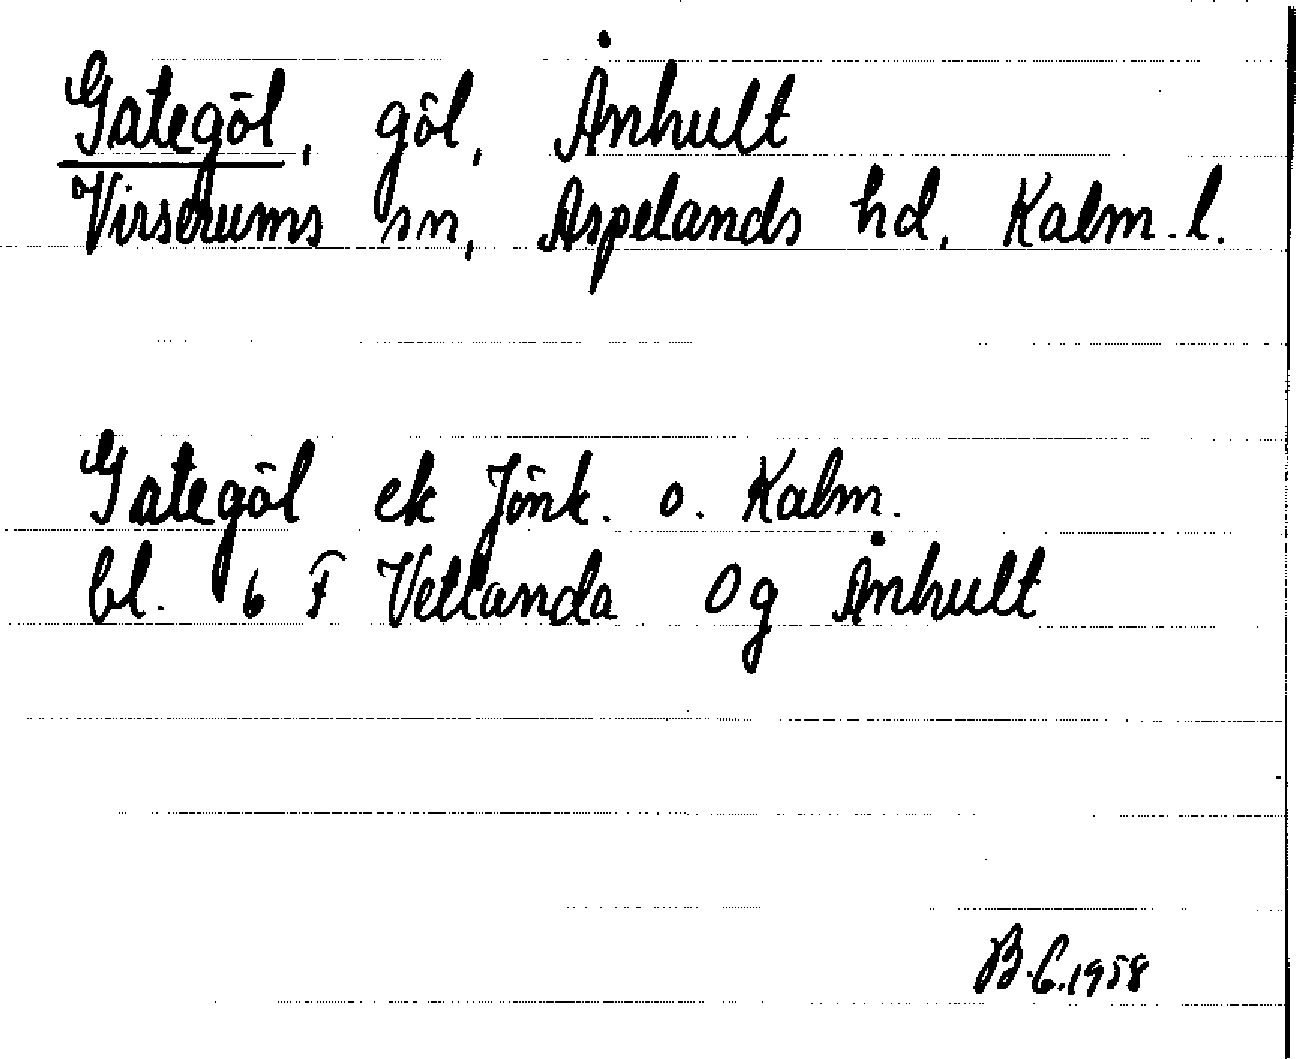 Gategöl, göl, Ånhult
Virserums sn, Aspelands hd, Kalm. l.
Gategöl ek Jönk. o. Kalm.
bl. 6 F Vetlanda Og Ånhult
B.C.1958